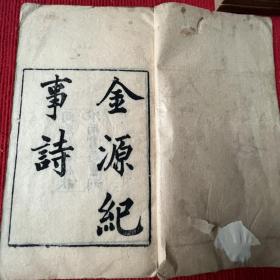 金源紀
事詩